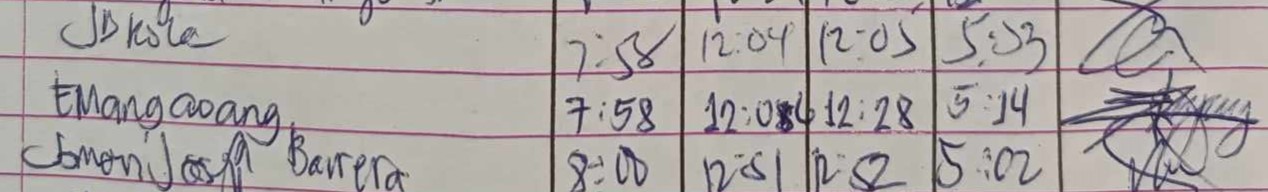 JD Kola 7:58 12:04 12:05 5:03
EMangaoang 7:58 12:04 12:28 5:14
Barrera 8:00 12:51 12:52 5:02